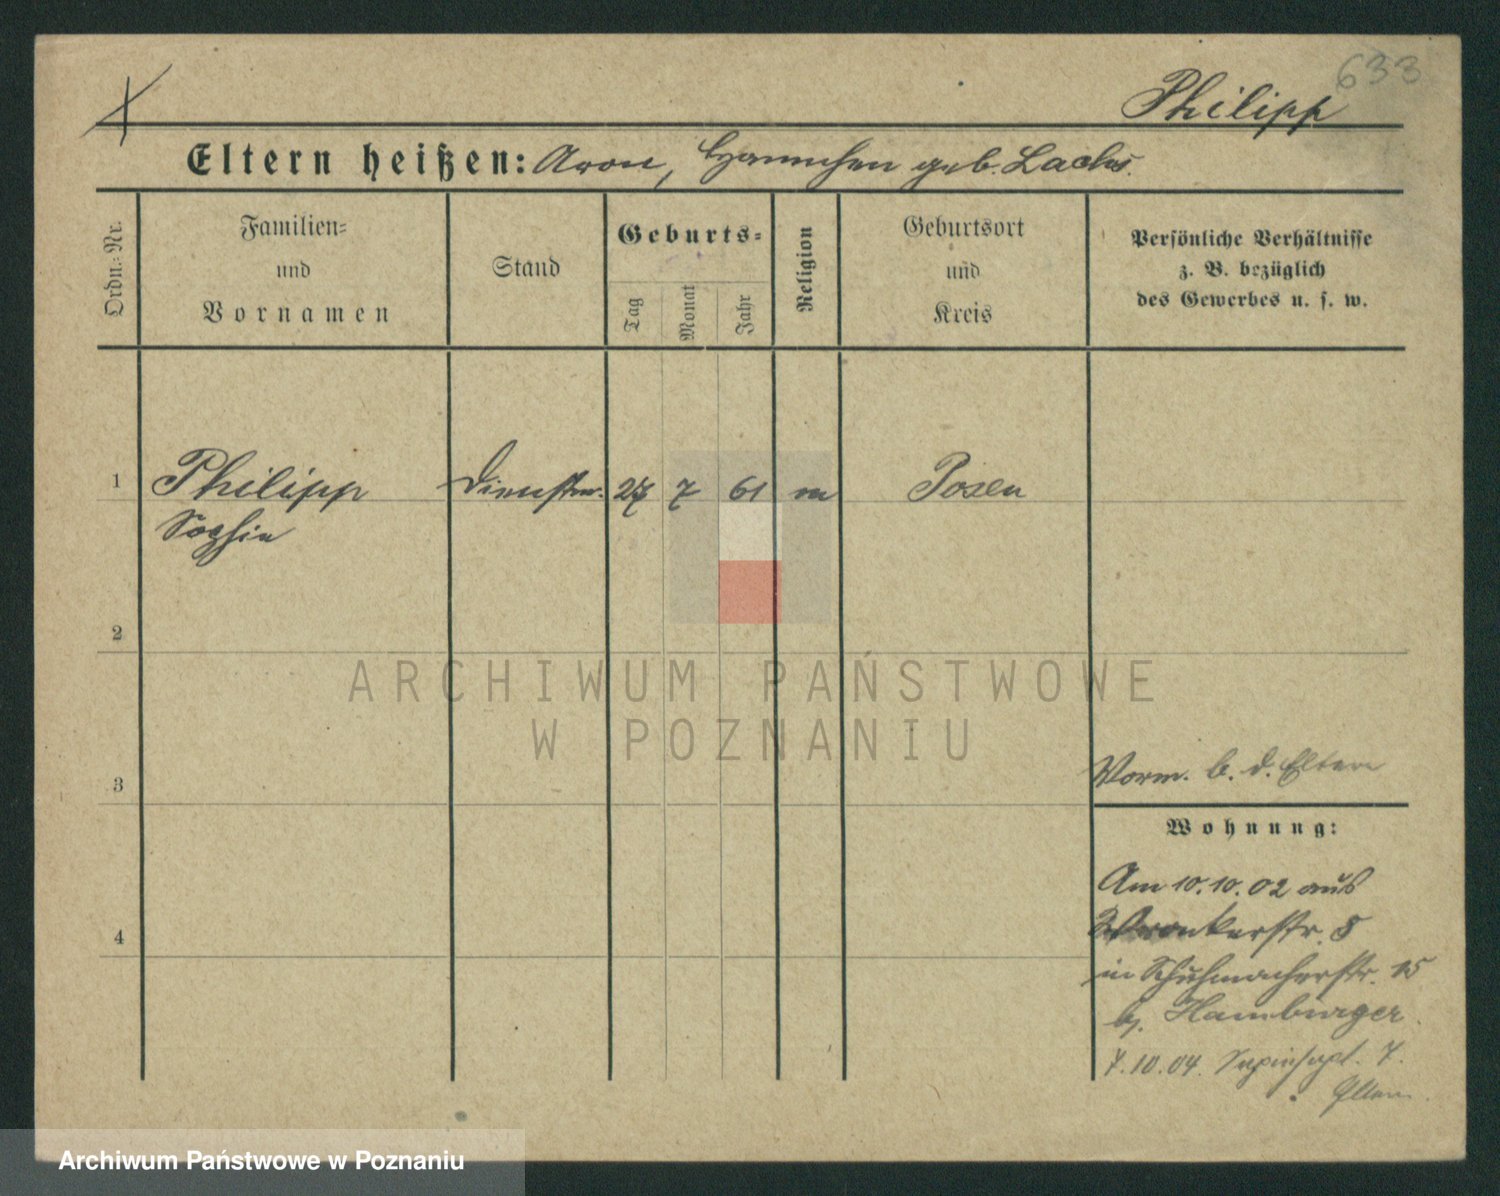 633
Philipp
Eltern heißen: Aron, Hannchen geb. Lachs.
Ordn.-Nr.
Familien-
und
Vornamen
Stand
Geburts-
Tag
Monat
Jahr
Religion
Geburtsort
und
Kreis
Persönliche Verhältnisse
z. B. bezüglich
des Gewerbes u. s. w.
1 Philipp Dienstm. 27 7 61 m Posen
Sophie
2
ARCHIWUM PAŃSTWOWE
W POZNANIU
3
Vorm. b. d. Eltern
Wohnung:
Am 10.10.02 aus
Wronkerstr. 8
4
in Schuhmacherstr. 15
b. Hamburger
7.10.04. 7.
Eltern.
Archiwum Państwowe w Poznaniu